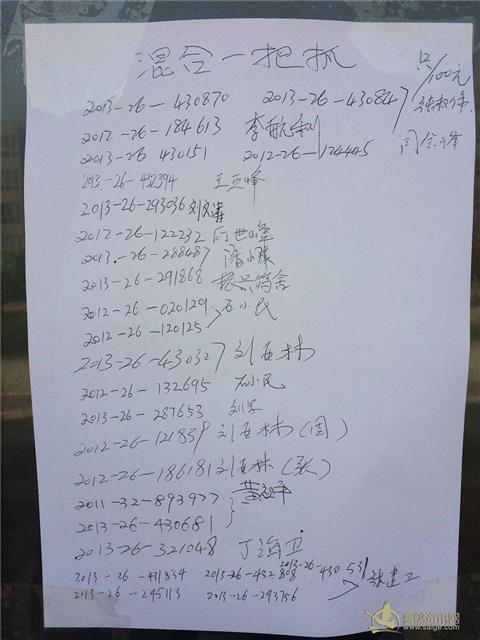 混合一把抓
只/100元
2013-26-430870 2013-26-43084
2012-26-184613 李
2013-26 430151 2012-26-124445
2013-26-432394 王亚峰
2013-26-293036 刘文涛
2012-26-122232 闫世峰
2013-26-288487 陈小强
2013-26-291868 振兴鸽舍
2012-26-020129 石小民
2012-26-120125
2013-26-430327 刘西林
2012-26-132695 石小民
2013-26-287653 刘军
2012-26-121839 刘西林(周)
2012-26-186181 刘西林(张)
2011-32-893977 黄
2013-26-430681
2013-26-321048 丁海卫
2013-26-431834 2013-26-432808 2013-26-430531
2013-26-295113 2013-26-293756 张建卫
www.saige.com